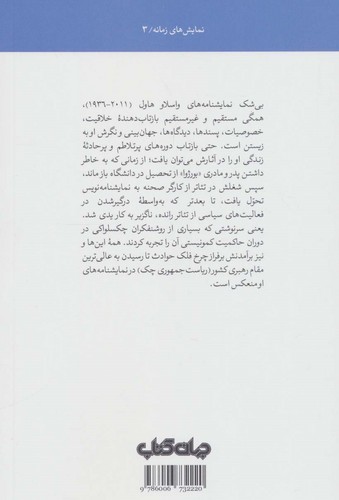 نمایش‌های زمانه / ۳
بی‌شک نمایشنامه‌های واسلاو هاول (۲۰۱۱-۱۹۳۶)،
همگی مستقیم و غیرمستقیم بازتاب‌دهندهٔ خلاقیت،
خصوصیات، پسندها، دیدگاه‌ها، جهان‌بینی و نگرش او به
زیستن است. حتی بازتاب دوره‌های پرتلاطم و پرحادثهٔ
زندگی او را در آثارش می‌توان یافت؛ از زمانی که به خاطر
داشتن پدر و مادری «بورژوا» از تحصیل در دانشگاه بازماند،
سپس شغلش در تئاتر از کارگر صحنه به نمایشنامه‌نویس
تحوّل یافت، تا بعدتر که به‌واسطهٔ درگیرشدن در
فعالیت‌های سیاسی از تئاتر رانده، ناگزیر به کار یدی شد.
یعنی سرنوشتی که بسیاری از روشنفکران چکسلواکی در
دوران حاکمیت کمونیستی آن را تجربه کردند. همهٔ این‌ها و
نیز برآمدنش برفراز چرخ فلک حوادث تا رسیدن به عالی‌ترین
مقام رهبری کشور (ریاست جمهوری چک) در نمایشنامه‌های
او منعکس است.
جهان کتاب
9 786006 732220